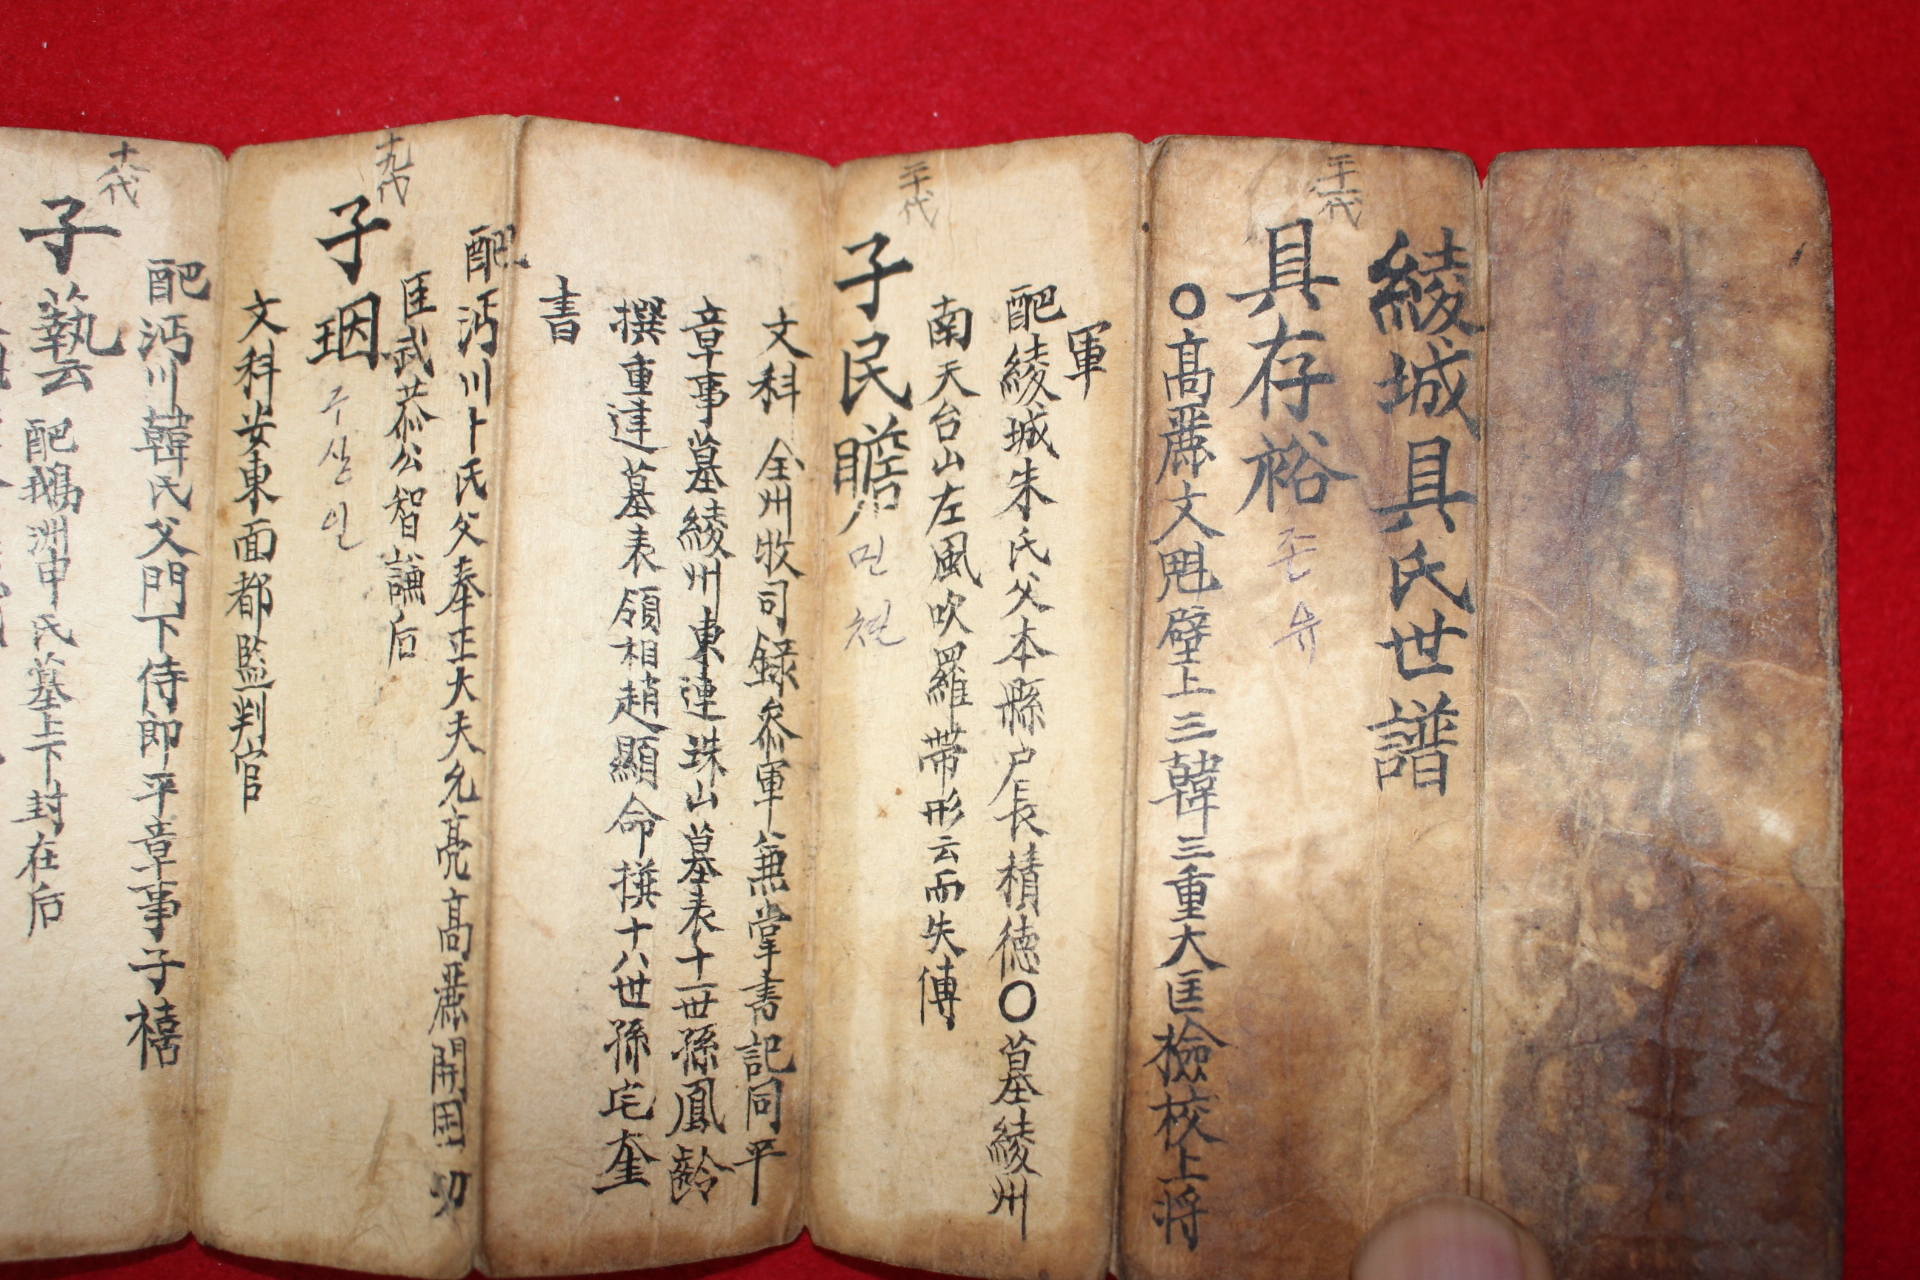 綾城具氏世譜
二十一代
具存裕 존유
○高麗文魁壁上三韓三重大匡檢校上將
軍
配綾城朱氏父本縣户長積德○墓綾州
南天台山左風吹羅帶形云而失傳
二十代
子民瞻 민첨
文科 全州牧司録叅軍兼掌書記同平
章事墓綾州東連珠山墓表十一世孫鳳齡
撰重建墓表領相趙顯命撰十八世孫宅奎
書
配沔川卜氏父奉正大夫允亮高麗開国功
臣武恭公智謙后
十九代
子珚 구 인
文科安東面都監判官
配沔川韓氏父門下侍郎平章事子禧
十八代
子藝 配鵝洲申氏墓上下封在后